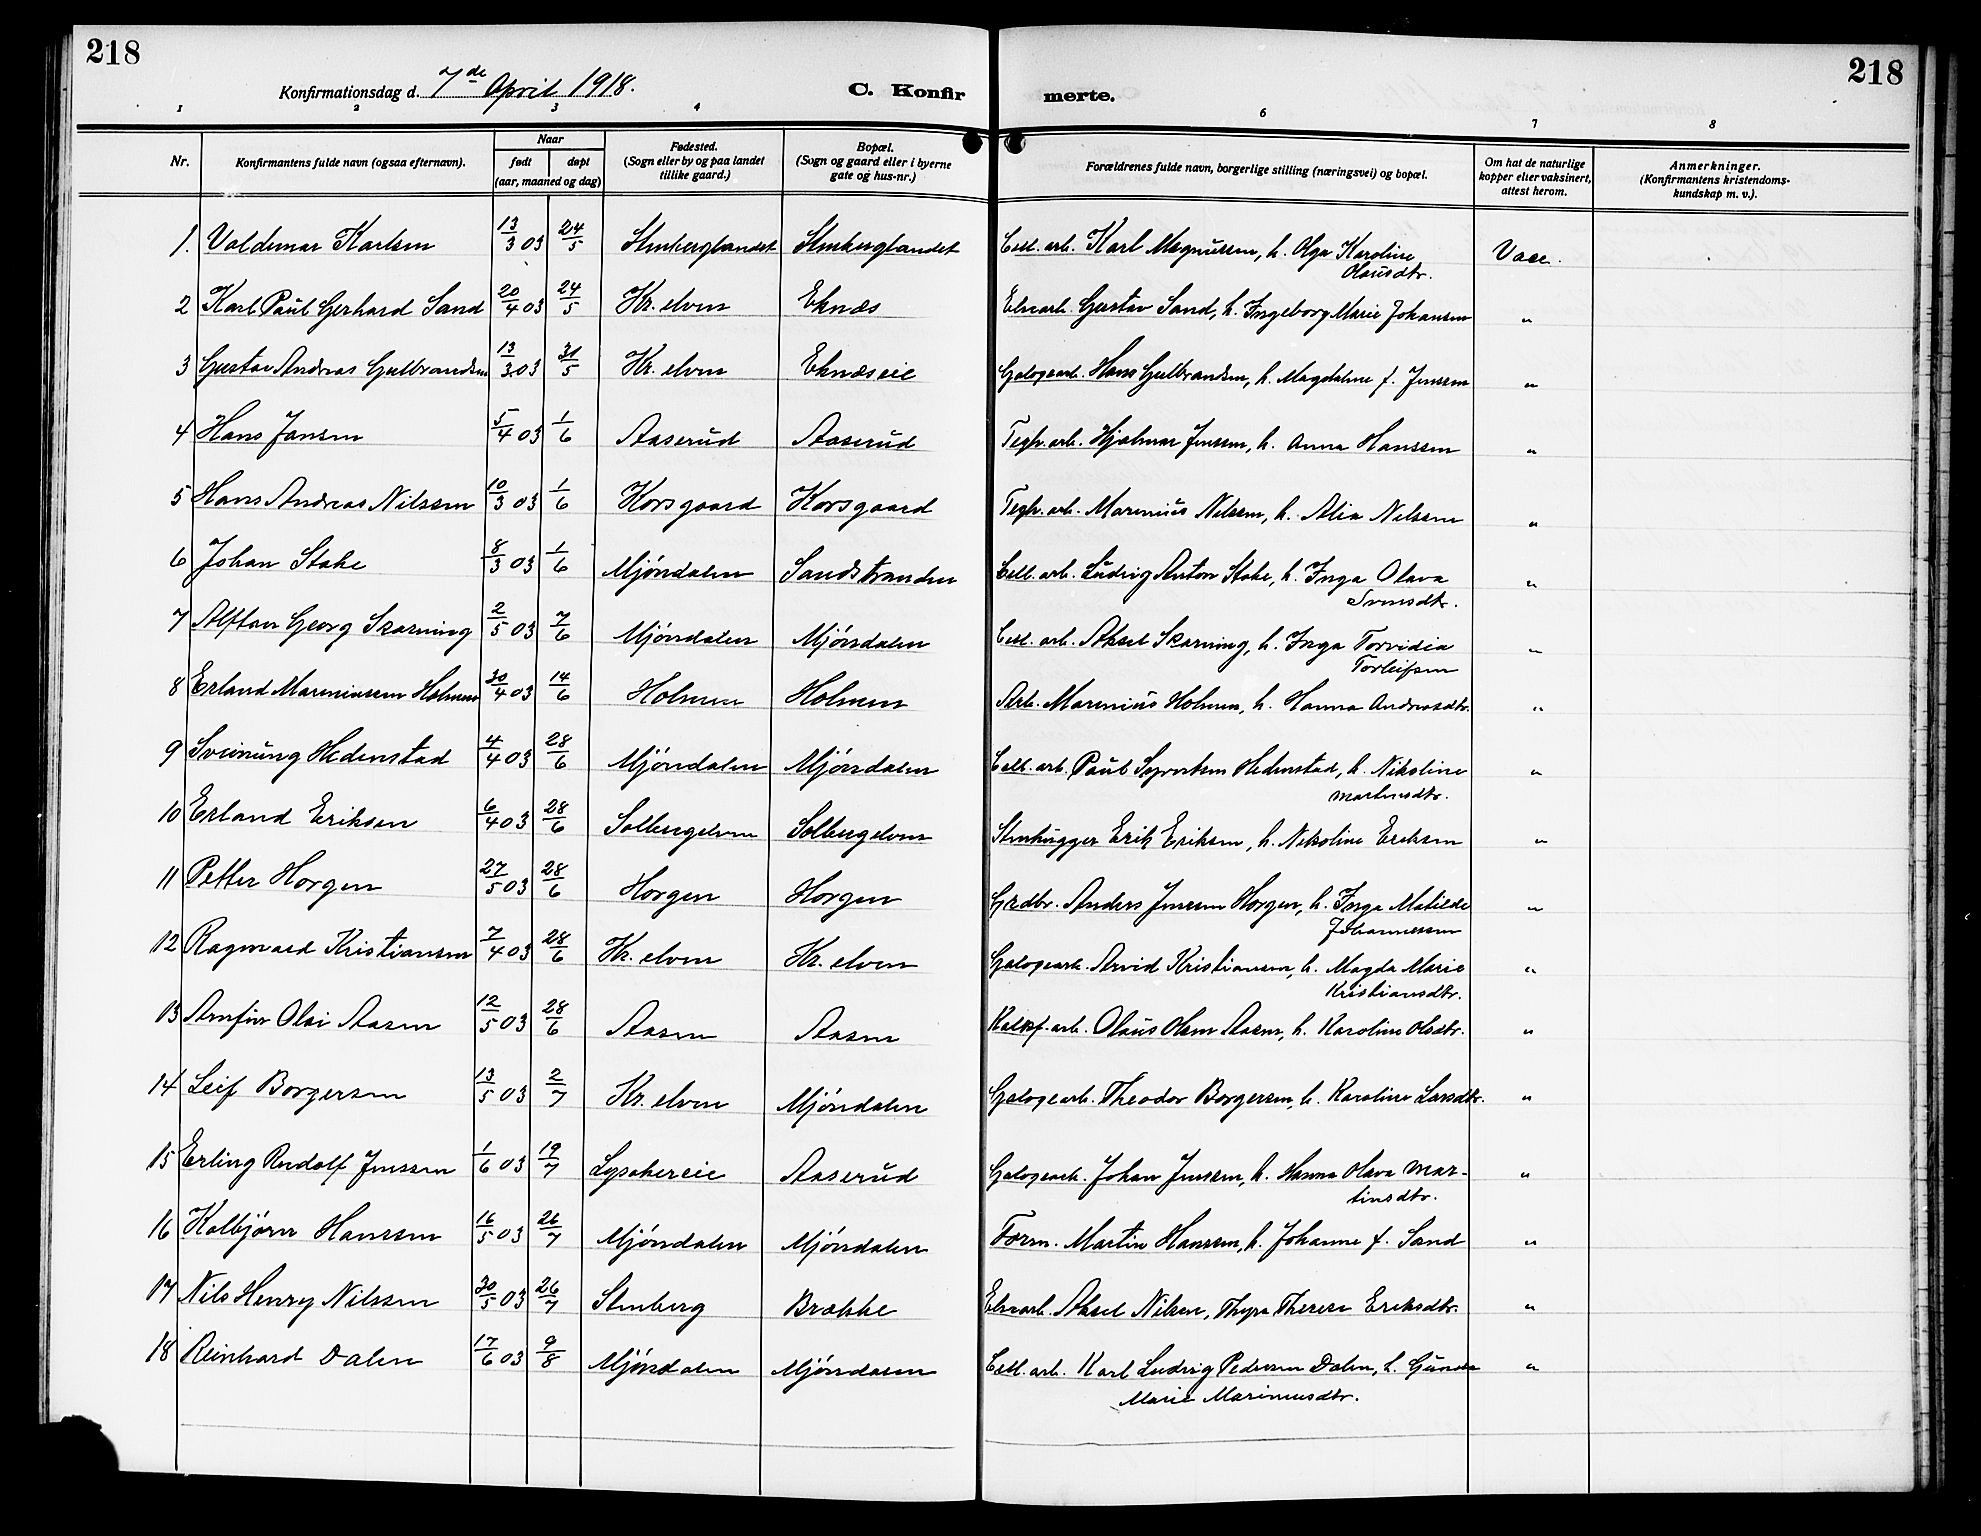 218
218
Konfirmationsdag d. 7de April 1918.
C. Konfir
merte.
1 2 3 4 6 7 8
Nr.
Konfirmantens fulde navn (ogsaa efternavn).
Naar
født døpt
(aar, maaned og dag)
Fødested.
(Sogn eller by og paa landet
tillike gaard.)
Bopæl.
(Sogn og gaard eller i byerne
gate og hus-nr.)
Forældrenes fulde navn, borgerlige stilling (næringsvei) og bopæl.
Om hat de naturlige
kopper eller vaksinert,
attest herom.
Anmerkninger.
(Konfirmantens kristendoms-
kundskap m. v.).
1. Valdemar Karlsen 13/3 03 24/5 Stenberglandet Stenberglandet Cell. arb. Karl Magnussen, h. Olga Karoline Vacc.
Olausdtr.
2 Karl Paul Gerhard Sand 20/4 03 24/5 Kr. elven Eknæs Elvearb. Gustav Sand, h. Ingeborg Marie Johansen "
3 Gustav Andreas Gulbrandsen 13/3 03 31/5 Kr. elven Eknæseie Galogearb. Hans Gulbrandsen, h. Magdalene f. Jenssen "
4 Hans Jansen 5/4 03 1/6 Aaserud Aaserud Teglv. arb. Hjalmar Jenssen, h. Anna Hanssen "
5 Hans Andreas Nilssen 10/3 03 1/6 Korsgaard Korsgaard Teglv. arb. Marenius Nilssen, h. Alia Nilssen "
6 Johan Stake 8/3 03 1/6 Mjøndalen Sandstranden Cell. arb. Ludvig Anton Stake, h. Inga Olava "
Svensdtr.
7 Alftan Georg Skarning 2/5 03 7/6 Mjøndalen Mjøndalen Cell. arb. Aksel Skarning, h. Inga Torvidia "
Torleifsen
8 Erland Mareniussen Holmen 30/4 03 14/6 Holmen Holmen Arb. Marenius Holmen, h. Hanna Andreasdtr. "
9 Sveinung Hedenstad 4/4 03 28/6 Mjøndalen Mjøndalen Cell. arb. Paul Syvertsen Hedenstad, h. Nikoline "
Martinsdtr.
10 Erland Eriksen 6/4 03 28/6 Solbergelven Solbergelven Stenhugger Erik Eriksen, h. Nikoline Eriksen "
11 Petter Horgen 27/5 03 28/6 Horgen Horgen Grdbr. Anders Jenssen Horgen, h. Inga Matilde "
Johannessen
12 Ragnvald Kristiansen 7/4 03 28/6 Kr. elven Kr. elven Galogearb. Arvid Kristiansen, h. Magda Marie "
Kristiansdtr.
13 Arnfin Olai Aasen 12/5 03 28/6 Aasen Aasen Kalkf. arb. Olaus Olsen Aasen, h. Karoline Olsdtr. "
14 Leif Borgersen 13/5 03 2/7 Kr. elven Mjøndalen Galogearb. Theodor Borgersen, h. Karoline Larsdtr. "
15 Erling Rudolf Jenssen 1/6 03 19/7 Lysakereie Aaserud Galogearb. Johan Jenssen, h. Hanna Olava Mar- "
tinsdtr.
16 Kolbjørn Hanssen 16/5 03 26/7 Mjøndalen Mjøndalen Form. Martin Hanssen, h. Johanne f. Sand "
17 Nils Henry Nilssen 30/5 03 26/7 Stenberg Brække Elvearb. Aksel Nilsen, Thyra Therese Eriksdtr. "
18 Reinhard Dalen 17/6 03 9/8 Mjøndalen Mjøndalen Cell. arb. Karl Ludvig Pedersen Dalen, h. Gunda "
Marie Marinusdtr.